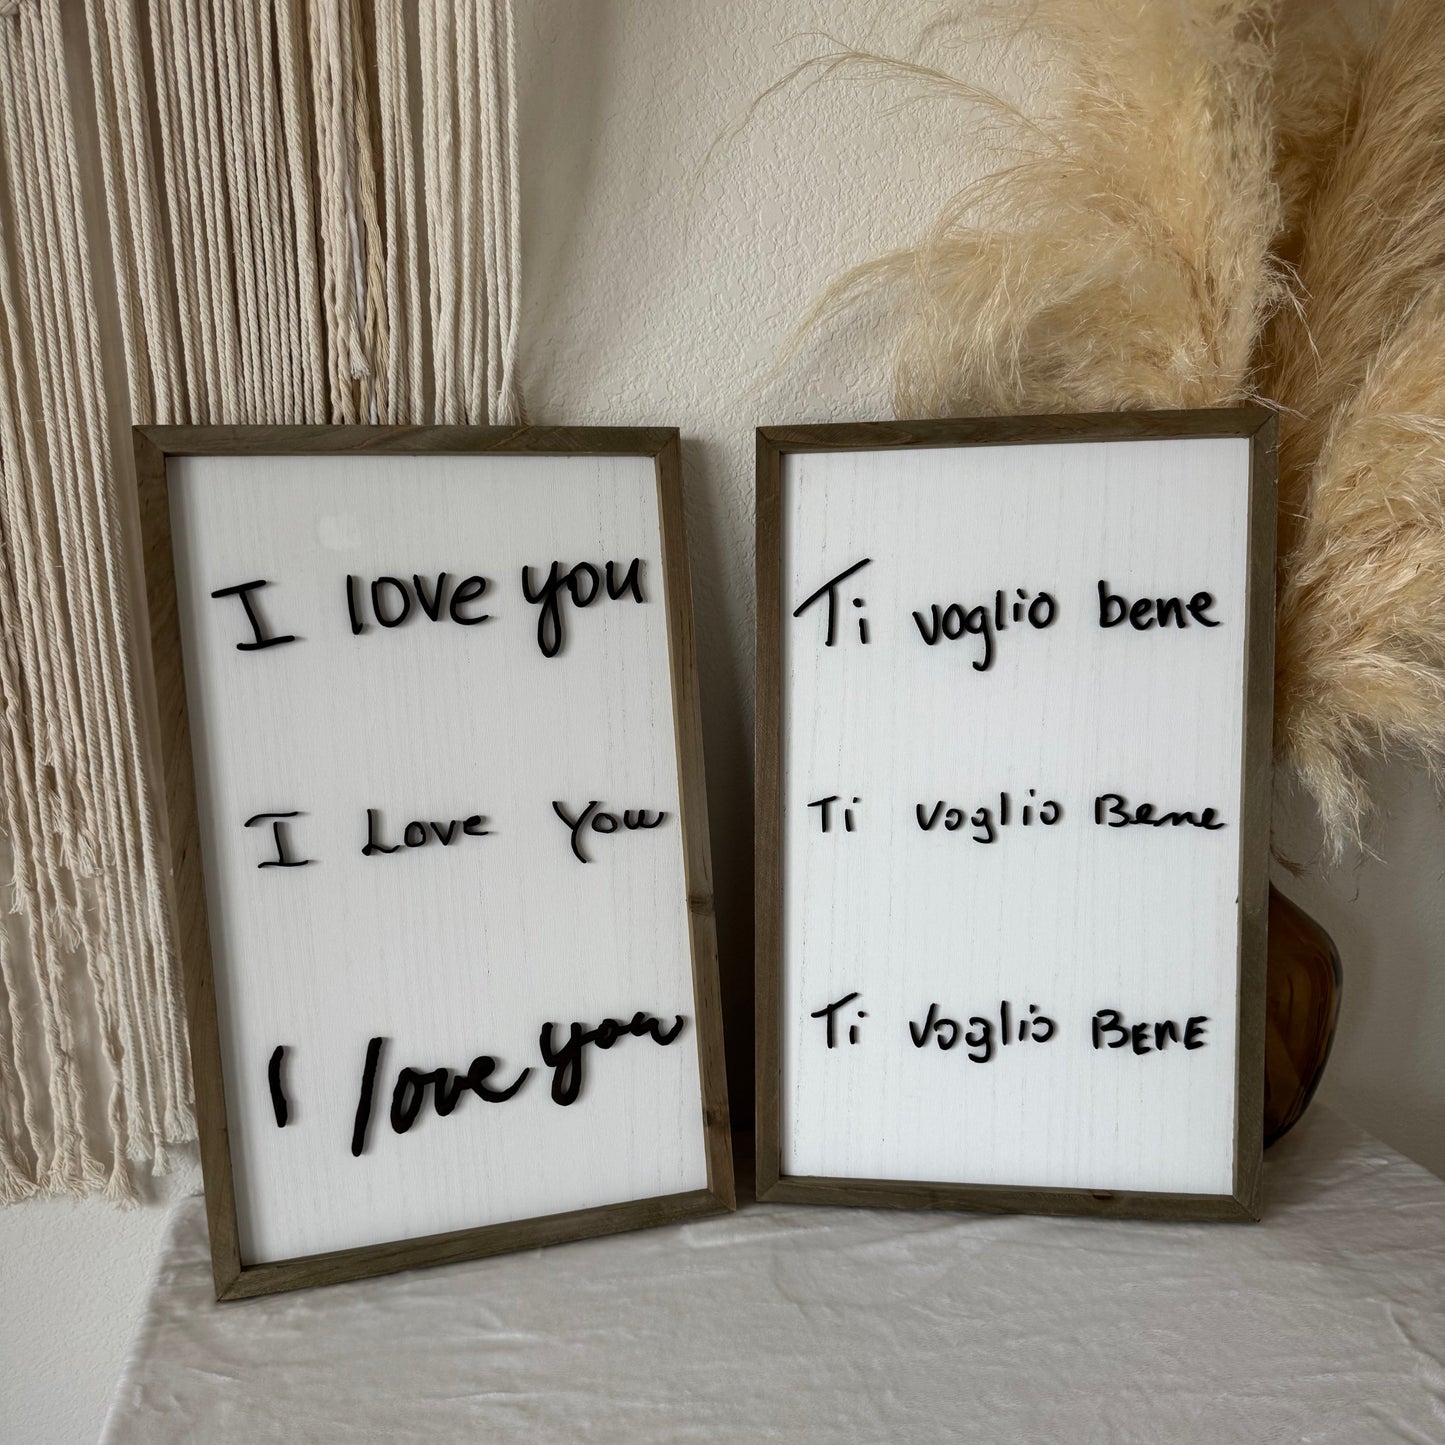 I love you
I Love You
I love you
Ti voglio bene
Ti voglio Bene
Ti Voglio BENE